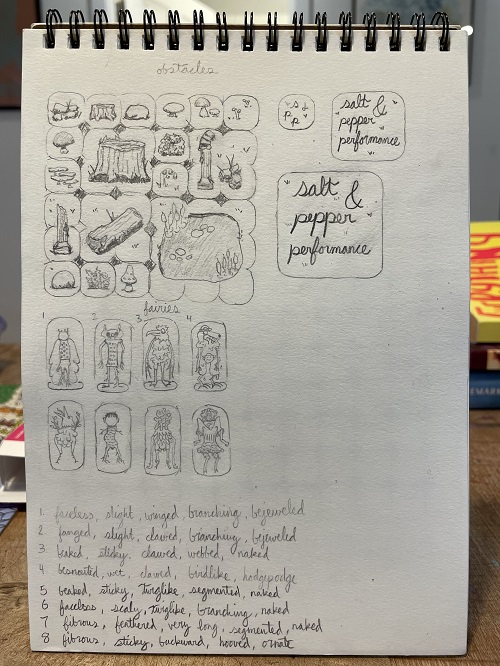 obstacles
s &
p p
salt &
pepper
performance
salt &
pepper
performance
fairies
1 2 3 4
1. faceless, slight, winged, branching, bejeweled
2. fanged, slight, clawed, branching, bejeweled
3 beaked, sticky, clawed, webbed, naked
4 besnouted, wet, clawed, birdlike, hodgepodge
5 beaked, sticky, twiglike, segmented, naked
6 faceless, scaly, twiglike, branching, naked
7 fibrous, feathered, very long, segmented, naked
8 fibrous, sticky, backward, hooved, ornate